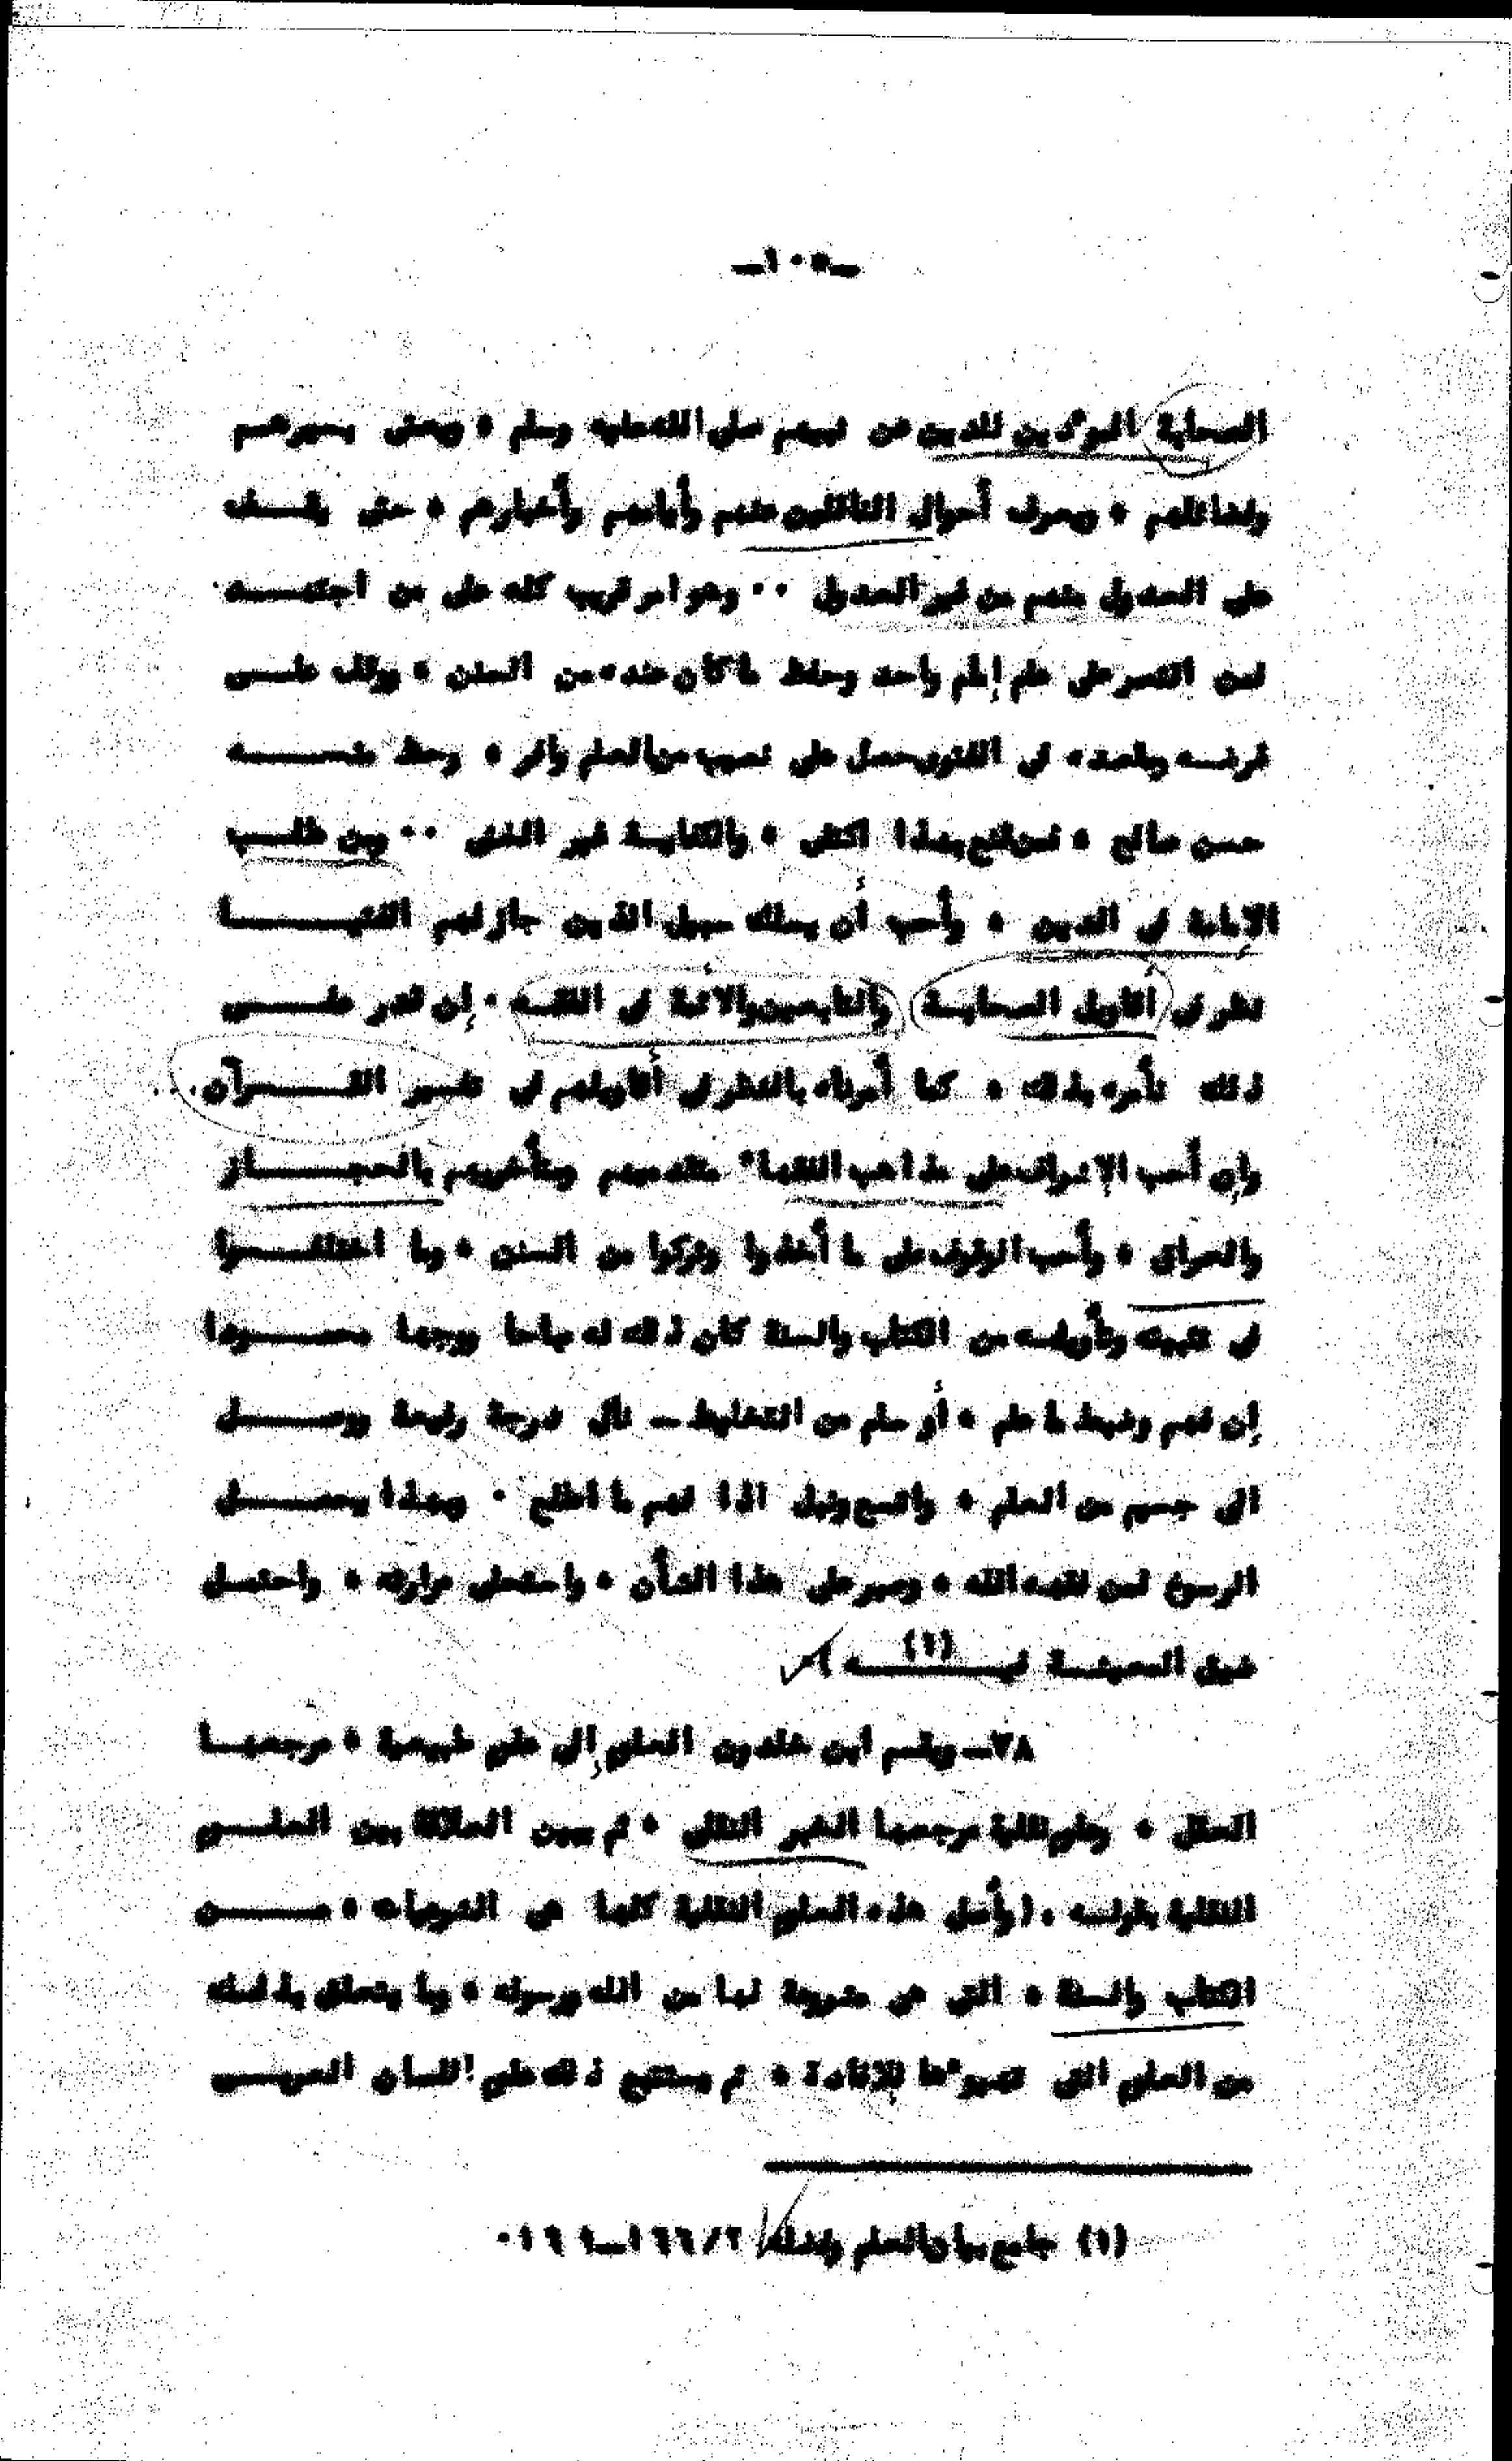 -١٠٥-
الصحابة المؤدين للدين عن نبيهم صلى الله عليه وسلم ، ويعنى بسيرهم
وفضائلهم ، ويعرف أحوال الناقلين عنهم وأيامهم وأخبارهم ، حتى يقف
على العدول منهم من غير العدول ٠٠ وهو أمر قريب كله على من اجتهد
فمن اقتصر على علم إمام واحد وحفظ ما كان عنده من السنن ، ووقف على
غرضه ومقصده في الفتوى حصل على نصيب من العلم وافر ، وحظ منه
حسن صالح ، فمن قنع بهذا اكتفى ، والكفاية غير الغنى ٠٠ ومن طلب
الإمامة في الدين ، وأحب أن يسلك سبيل الذين جاز لهم الفتيا
نظر في أقاويل الصحابة والتابعين والأئمة في الفقه ، إن قدر على
ذلك نأمره بذلك ، كما أمرناه بالنظر في أقاويلهم في تفسير القرآن ..
وإن أحب الإشراف على مذاهب الفقهاء متقدميهم ومتأخريهم بالحجاز
والعراق ، وأحب الوقوف على ما أخذوا وتركوا من السنن ، وما اختلفوا
في تثبيته وتأويله من الكتاب والسنة كان ذلك له مباحا ووجها محمودا
إن فهم وضبط ما علم ، أو سلم من التخليط - نال درجة رفيعة ووصل
الى جسيم من العلم ، واتسع ونبل اذا فهم ما اطلع ، وبهذا يحصل
الرسوخ لمن فقهه الله ، وصبر على هذا الشأن ، واستحلى مرارته ، واحتمل
ضيق المعيشة فيه ) (١)
٧٨- ويقسم ابن خلدون العلوم إلى علوم طبيعية ، مرجعها
العقل ، وعلوم نقلية مرجعها الخبر النقلي ، ثم يبين العلاقة بين العلوم
النقلية بقوله . ( وأصل هذه العلوم النقلية كلها هي الشرعيات ، من
الكتاب والسنة ، التي هي مشروعة لنا من الله ورسوله ، وما يتعلق بذلك
من العلوم التي تهيؤها للإفادة ، ثم يستتبع ذلك علوم اللسان العربي
(١) جامع بيان العلم وفضله ٢/١٦٦-١٦٩.